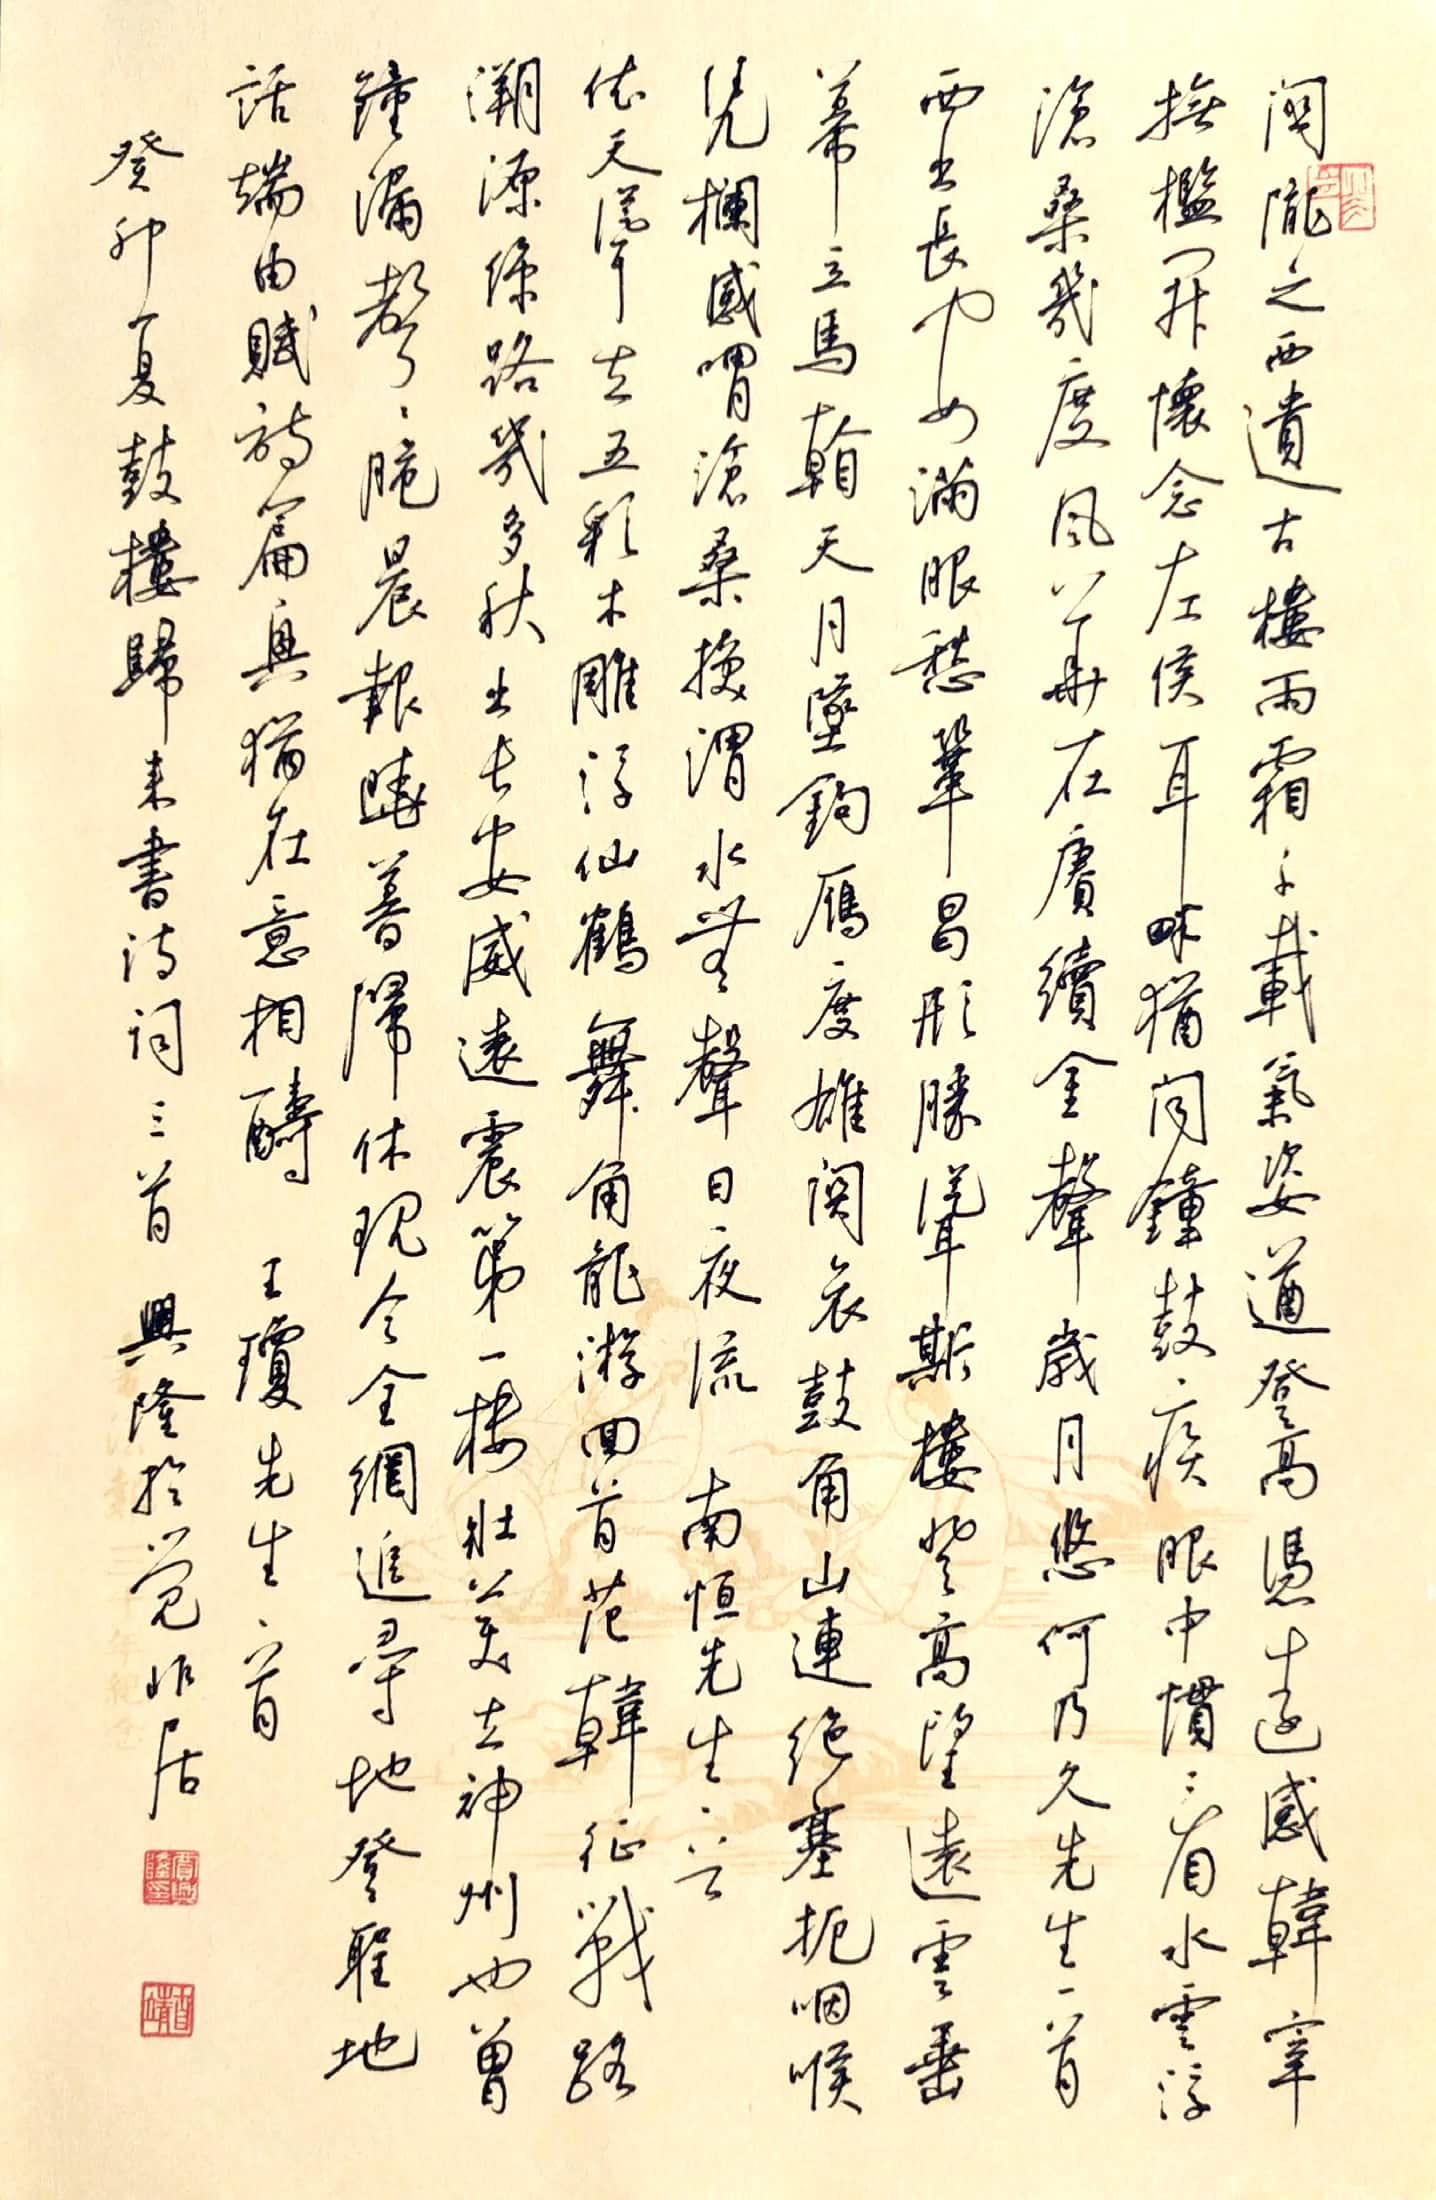 關隴之西遺古樓雨霜千載氣姿遒登高憑遠感韓宰
撫檻開軒懷念左侯耳畔猶聞鐘鼓疾眼中慣看水雲浮
滄桑幾度風華在賡續金聲歲月悠何乃久先生一首
西出長安滿眼愁鞏昌形勝聳斯樓登高望遠雲垂
幕立馬翰天月墜鉤雁度雄關哀鼓角山連絕塞扼咽喉
凭欄感喟滄桑換渭水無聲日夜流南恒先生一首
依天聳立五彩木雕浮仙鶴舞角龍游回首范韓征戰路
溯源絲路幾多秋出長安威遠震第一樓壯美立神州也曾
鐘漏聲聲脆晨報曉暮歸休現今全網追尋地登聖地
話端由賦詩篇興猶在意相酬王瓊先生一首
癸卯夏鼓樓歸來書詩詞三首興隆於覺非居